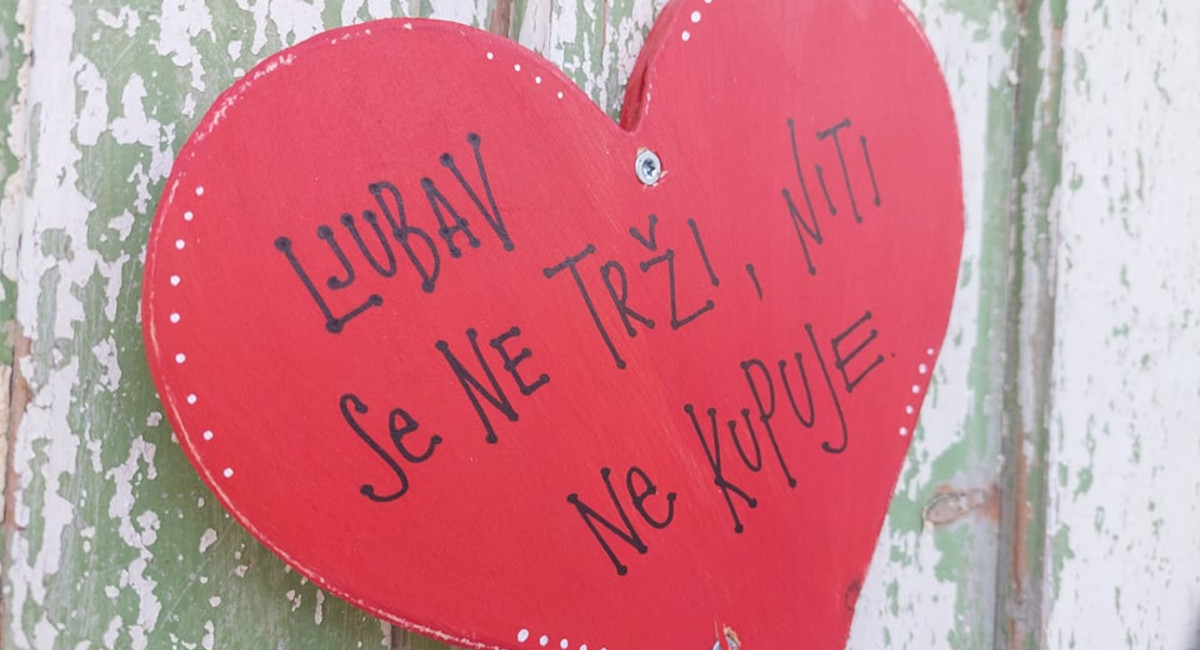 LJUBAV
Se NE TRŽI, NITI
Ne KUPUJE.